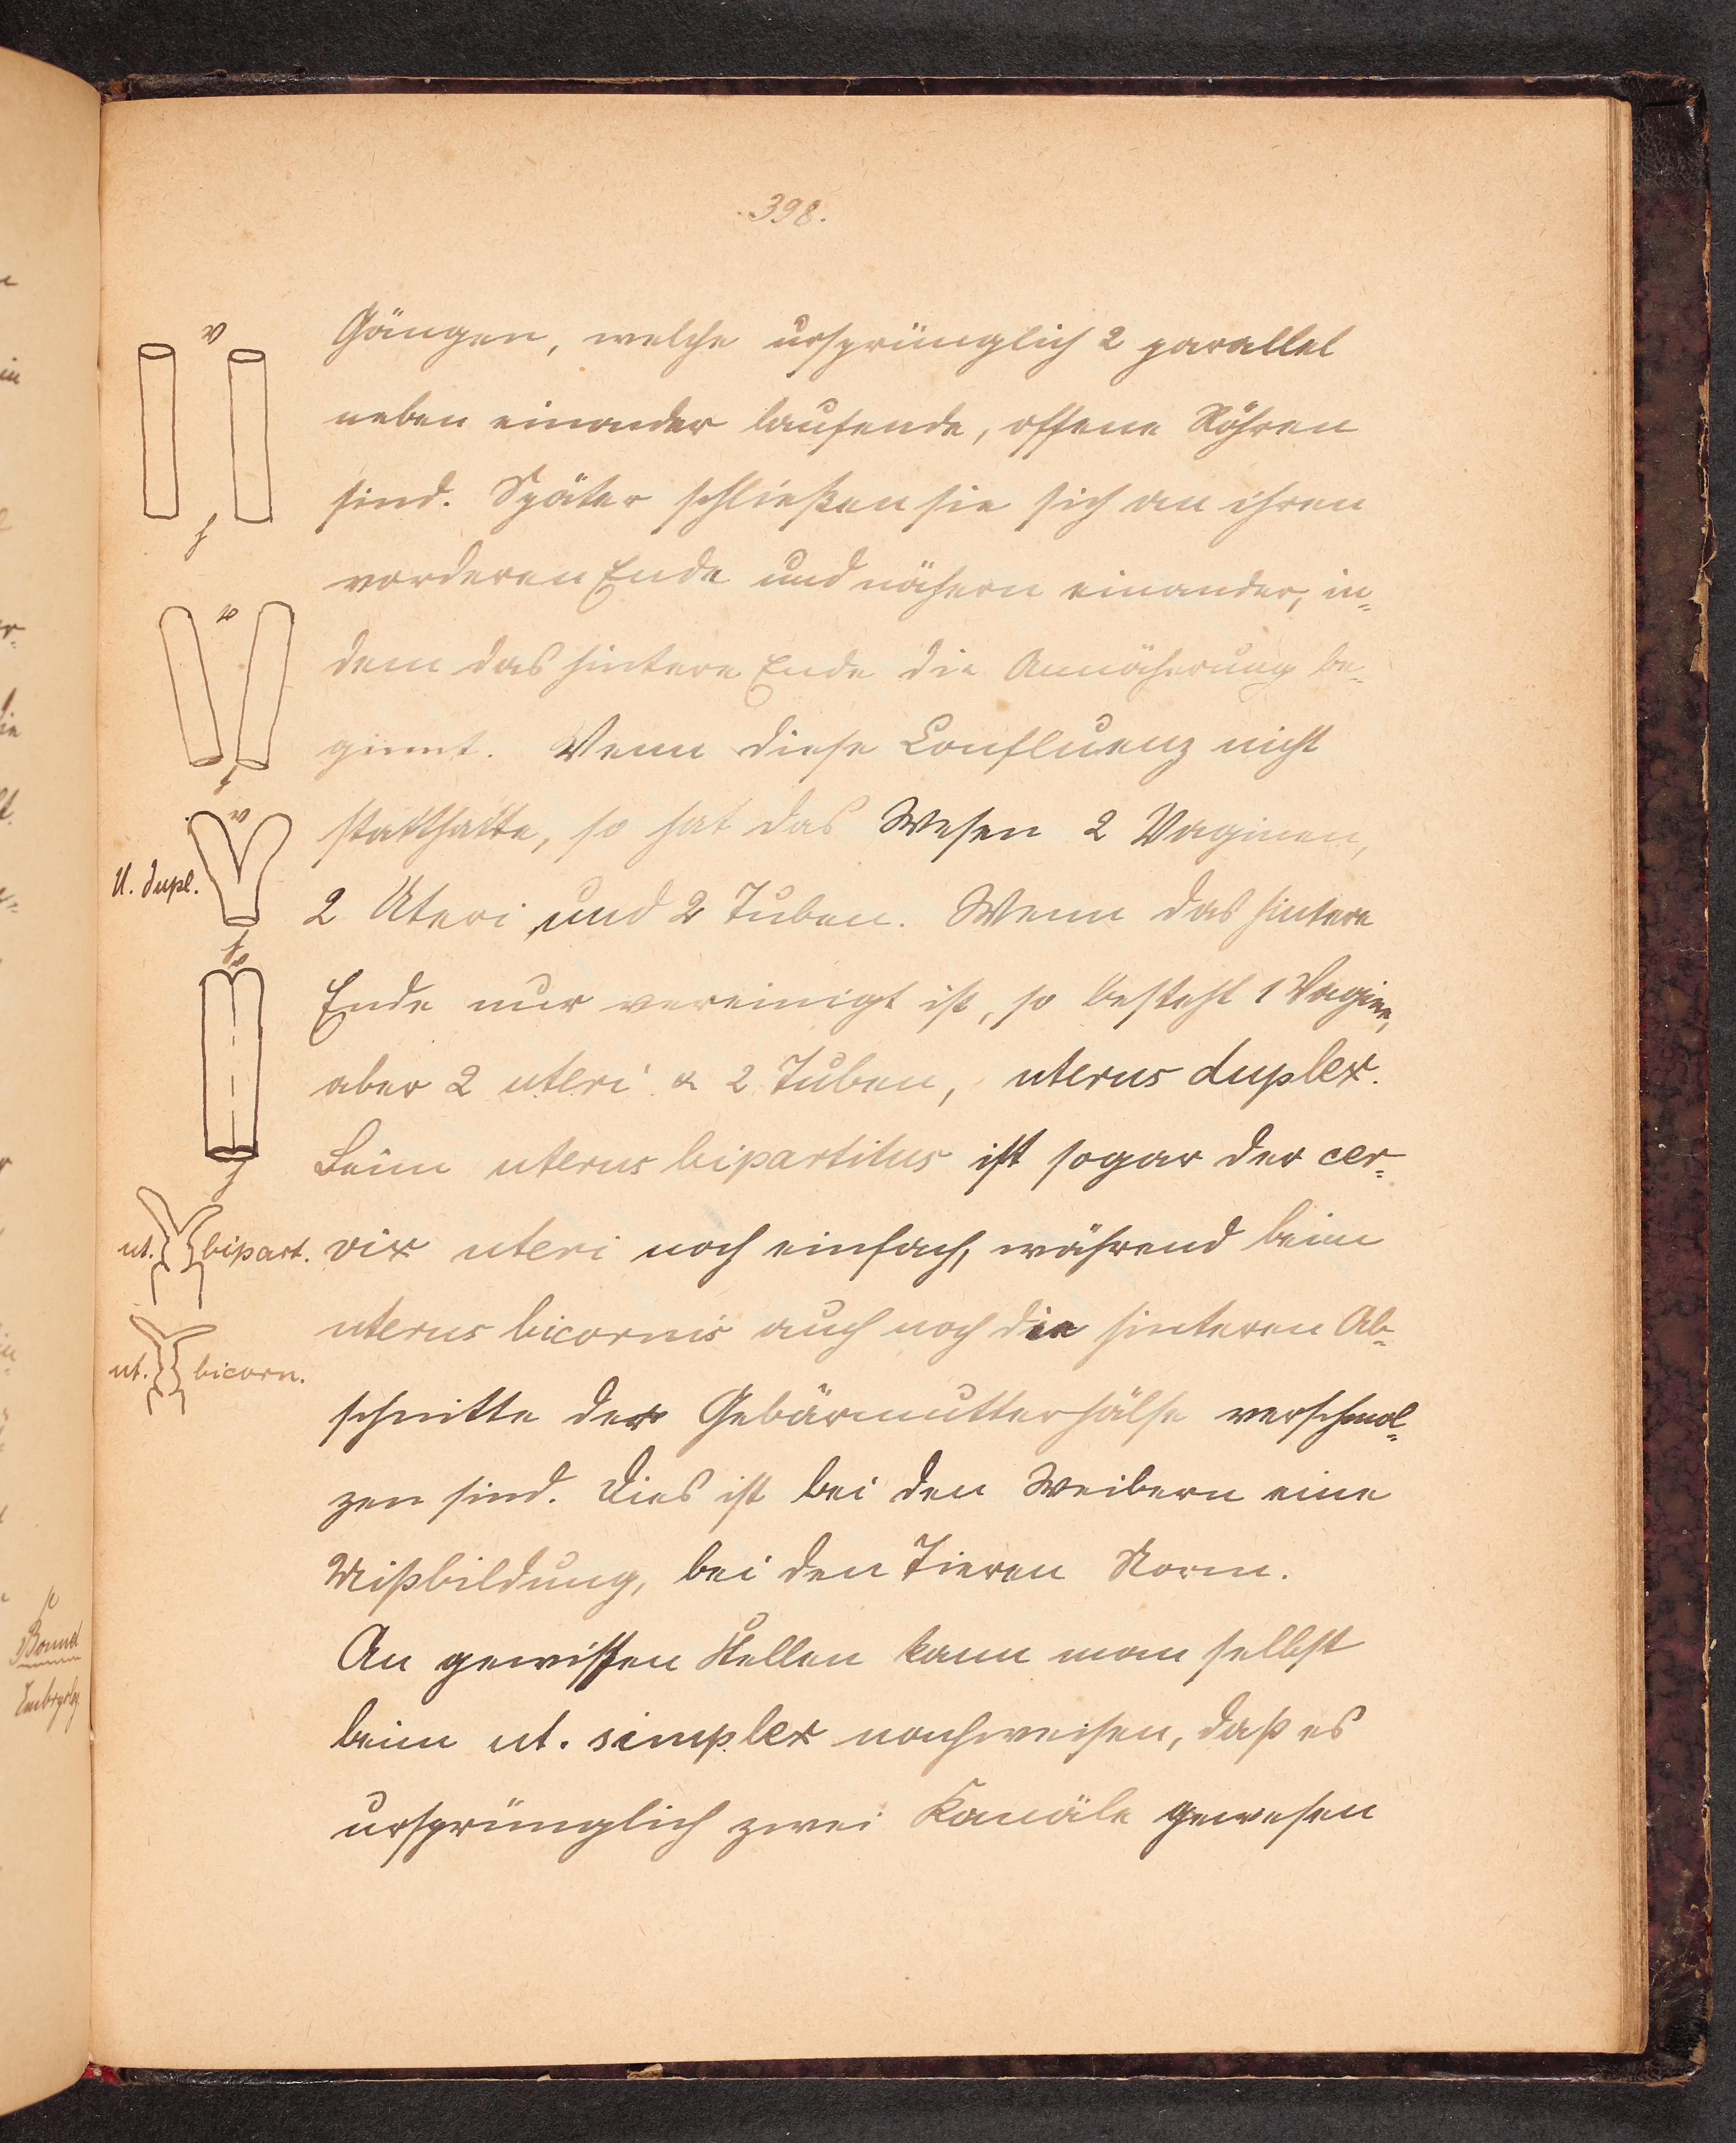 398.
v
Gängen, welche ursprünglich 2 parallel
neben einander laufende, offene Röhren
sind. Später schließen sie sich an ihren
h
vorderen Ende und nähern einander, in=
v
dem das hintere Ende die Annäherung be=
ginnt. Wenn diese Confluenz nicht
h
v
statthatte, so hat das Wesen 2 Vaginen,
U. dupl.
2 Uteri und 2 Tuben. Wenn das hintere
h
v
Ende nur vereinigt ist, so besteht 1 Vagina,
aber 2 uteri & 2 Tuben, uterus duplex.
Beim uterus bipartitus ist sogar der cer=
h
ut. bipart.
vix uteri noch einfach, während beim
uterus bicornis auch noch die hinteren Ab=
ut. bicorn.
schnitte der Gebärmutterhälse verschmol=
zen sind. Dies ist bei den Weibern eine
Mißbildung, bei den Tieren Norm.
An gewissen Stellen kann man selbst
beim ut. simplex nachweisen, daß es
ursprünglich zwei Kanäle gewesen